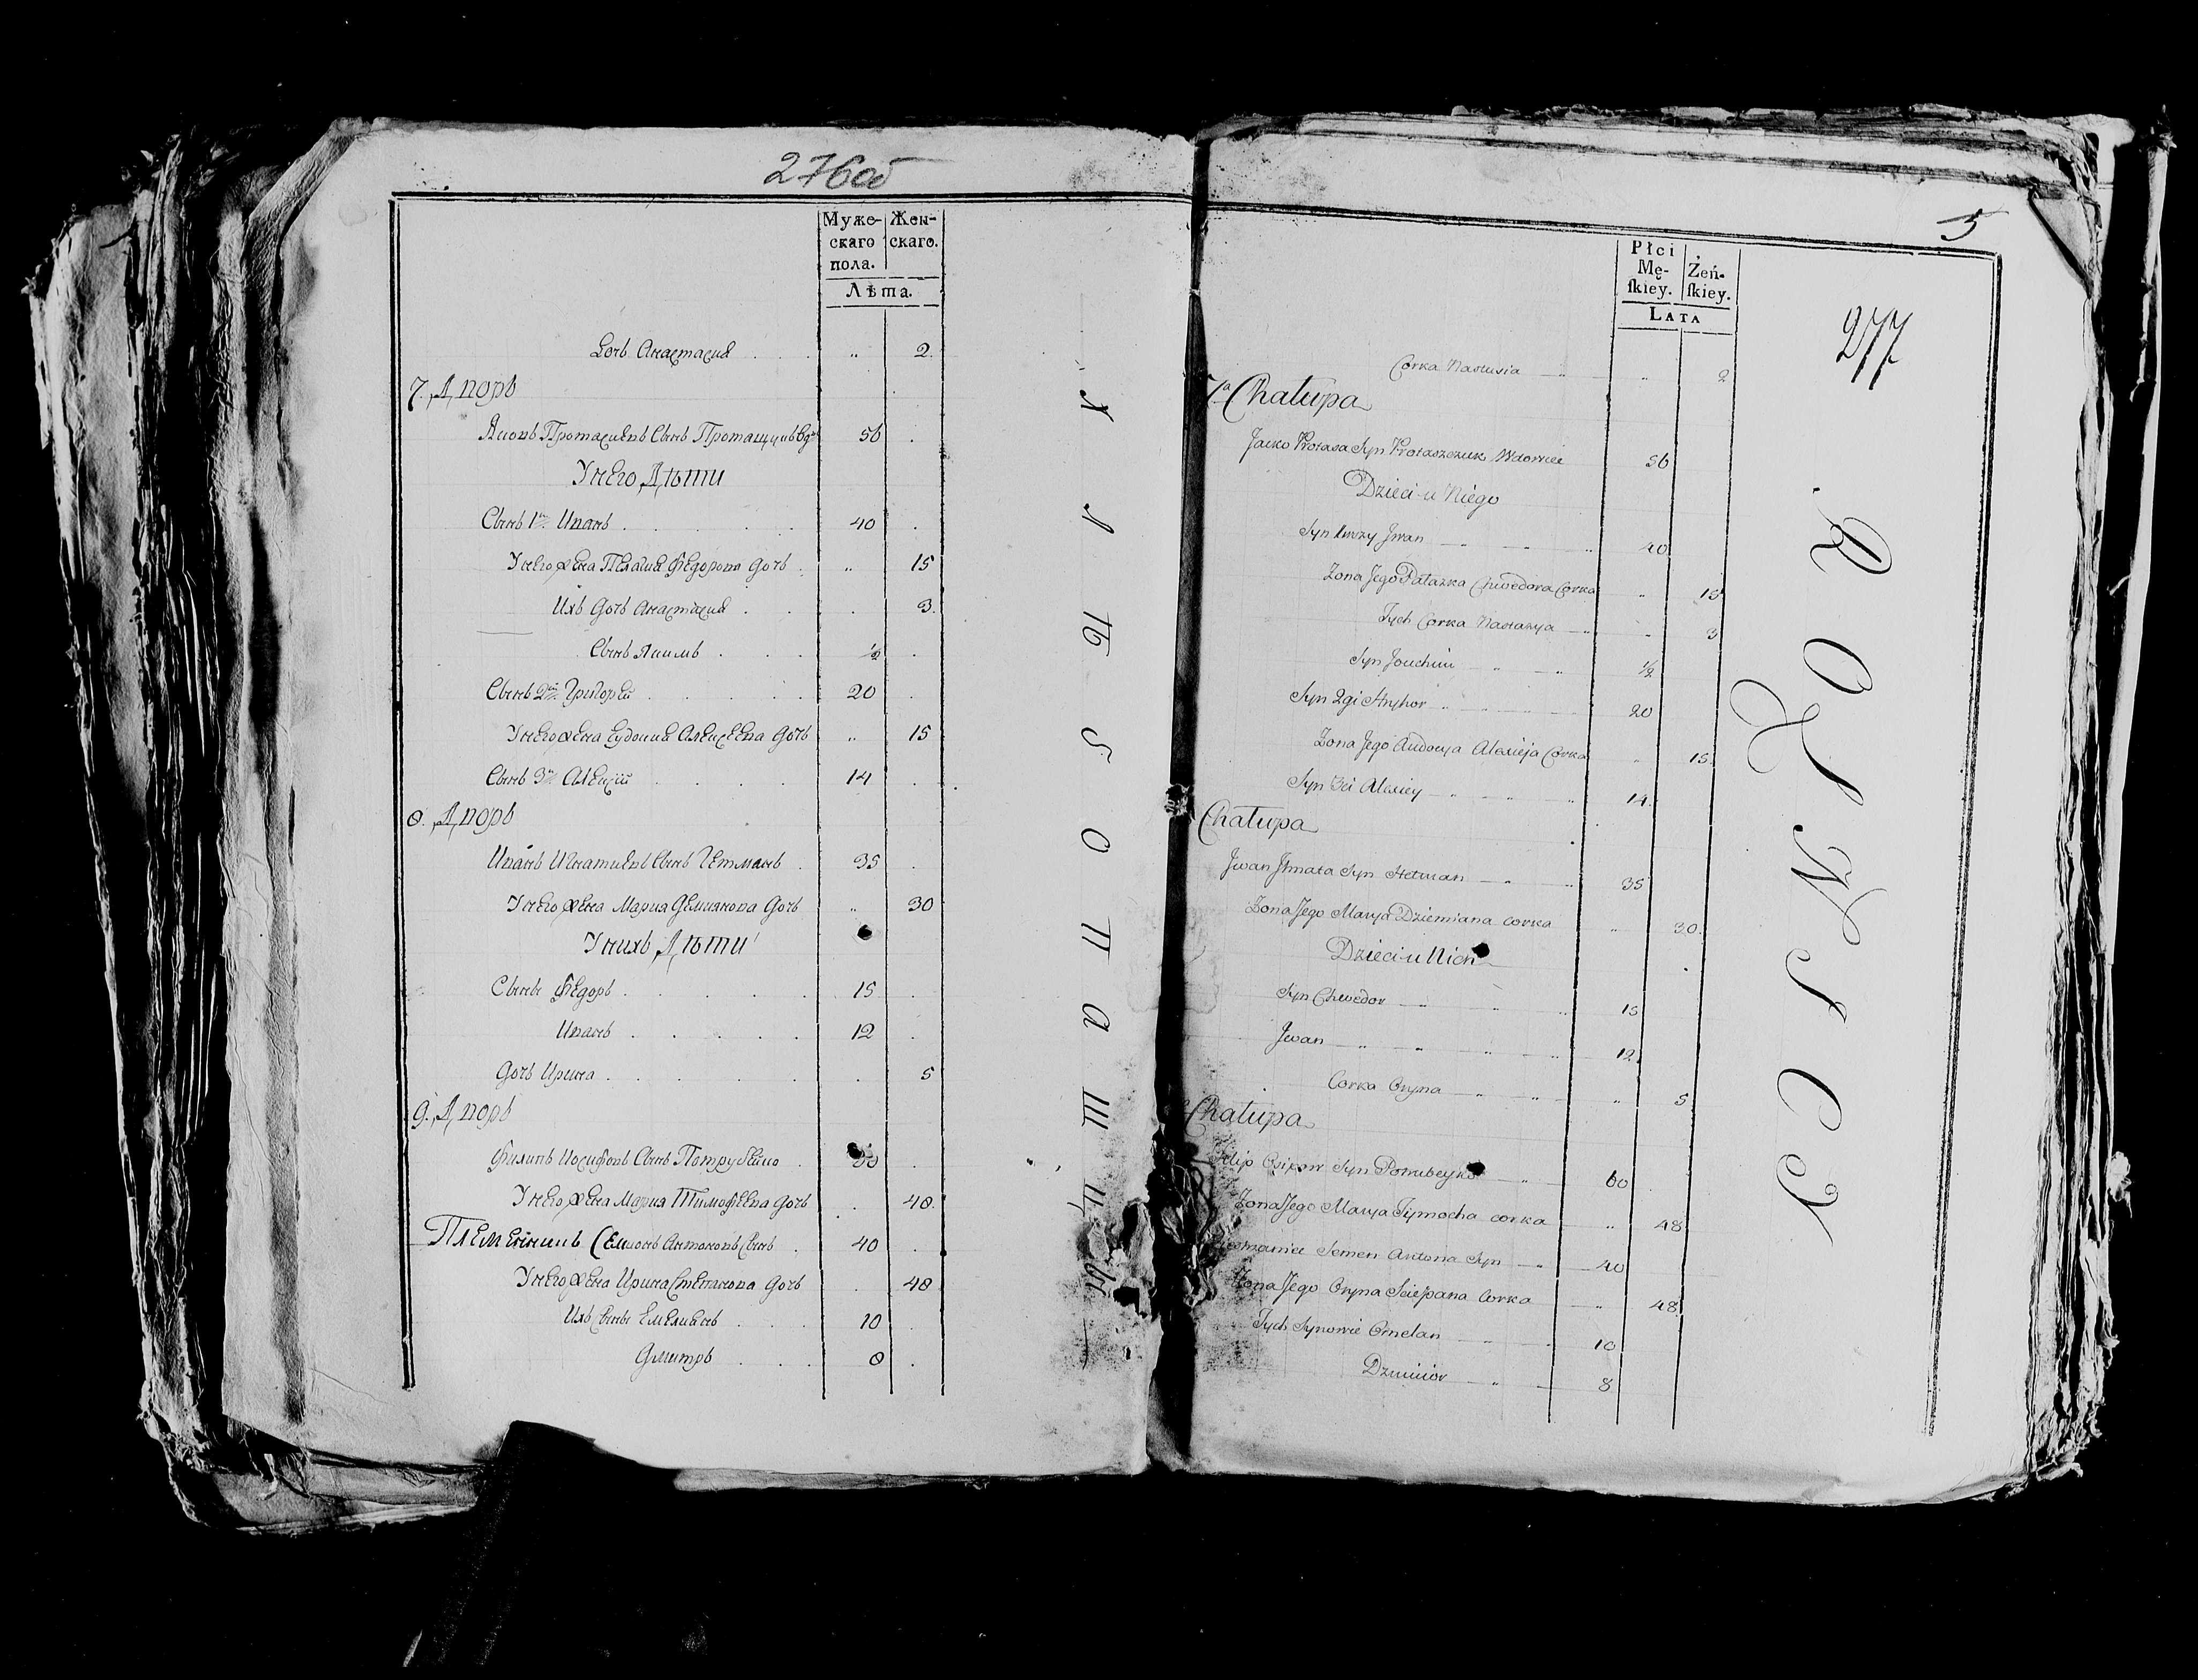 276об
Муже-
скаго
пола.
Жен-
скаго.
Лѣта.
Дочь Анастасия . . . „ 2.
7. Дворъ
Яковъ Протасиевъ Сынъ Протащукъ Вд. 56 .
У него Дѣти
Сынъ 1й Иванъ . . . . . 40 .
У него жена Пелагия Федорова дочь . „ 15
Ихъ дочь Анастасия . . . 3.
Сынъ Якимъ . . . ½ .
Сынъ 2й Григорей . . . . . 20 .
У него жена Евдокия Алексеева дочь „ 15
Сынъ 3й Алексій . . . . 14 .
8. Дворъ
Иванъ Игнатиевъ Сынъ Гетманъ . 35 .
У него жена Мария Демиянова дочь „ 30
У нихъ Дѣти
Сыны Федоръ . . . . . 15 .
Иванъ . . . . . 12 .
Дочь Ирина . . . . . 5
9. Дворъ
Филипъ Иосифовъ Сынъ Потрубейко . 60 .
У него жена Мария Тимофеева дочь . 48.
Племянникъ Семионъ Антоновъ Сынъ . 40 .
У него жена Ирина Степанова дочь . 48
Ихъ Сыны Емелианъ . . . 10 .
Дмитръ . . . 8 .
Х Л Ѣ Б О П А Ш Ц Ы
5
277
Płci
Mę-
ſkiey.
Żeń-
ſkiey.
LATA
Corka Nastusia „ 2
7a Chałupa
Jacko Protasa Syn Protaszczuk Wdowiec 56
Dzieci u Niego
Syn 1wszy Jwan 40
Zona Jego Pałazka Chwedora Corka „ 15
Tych Corka Nastazya „ 3
Syn Jouchim ½
Syn 2gi Hryhor 20
Zona Jego Audocya Alexieja Corka „ 15.
Syn 3ci Alexiey 14.
Chałupa
Jwan Jhnata Syn Hetman 35
Zona Jego Marya Dziemiana corka „ 30.
Dzieci u Nich
Syn Chwedor 15
Jwan 12
Corka Oryna „ 5
Chałupa
Filip Osipow Syn Potrubeyko 60
Zona Jego Marya Tymocha corka „ 48
Semen Antona Syn 40
Zona Jego Oryna Sciepana Corka „ 48
Tych Synowie Omelan 10
Dzmitior 8
R O L N I C Y